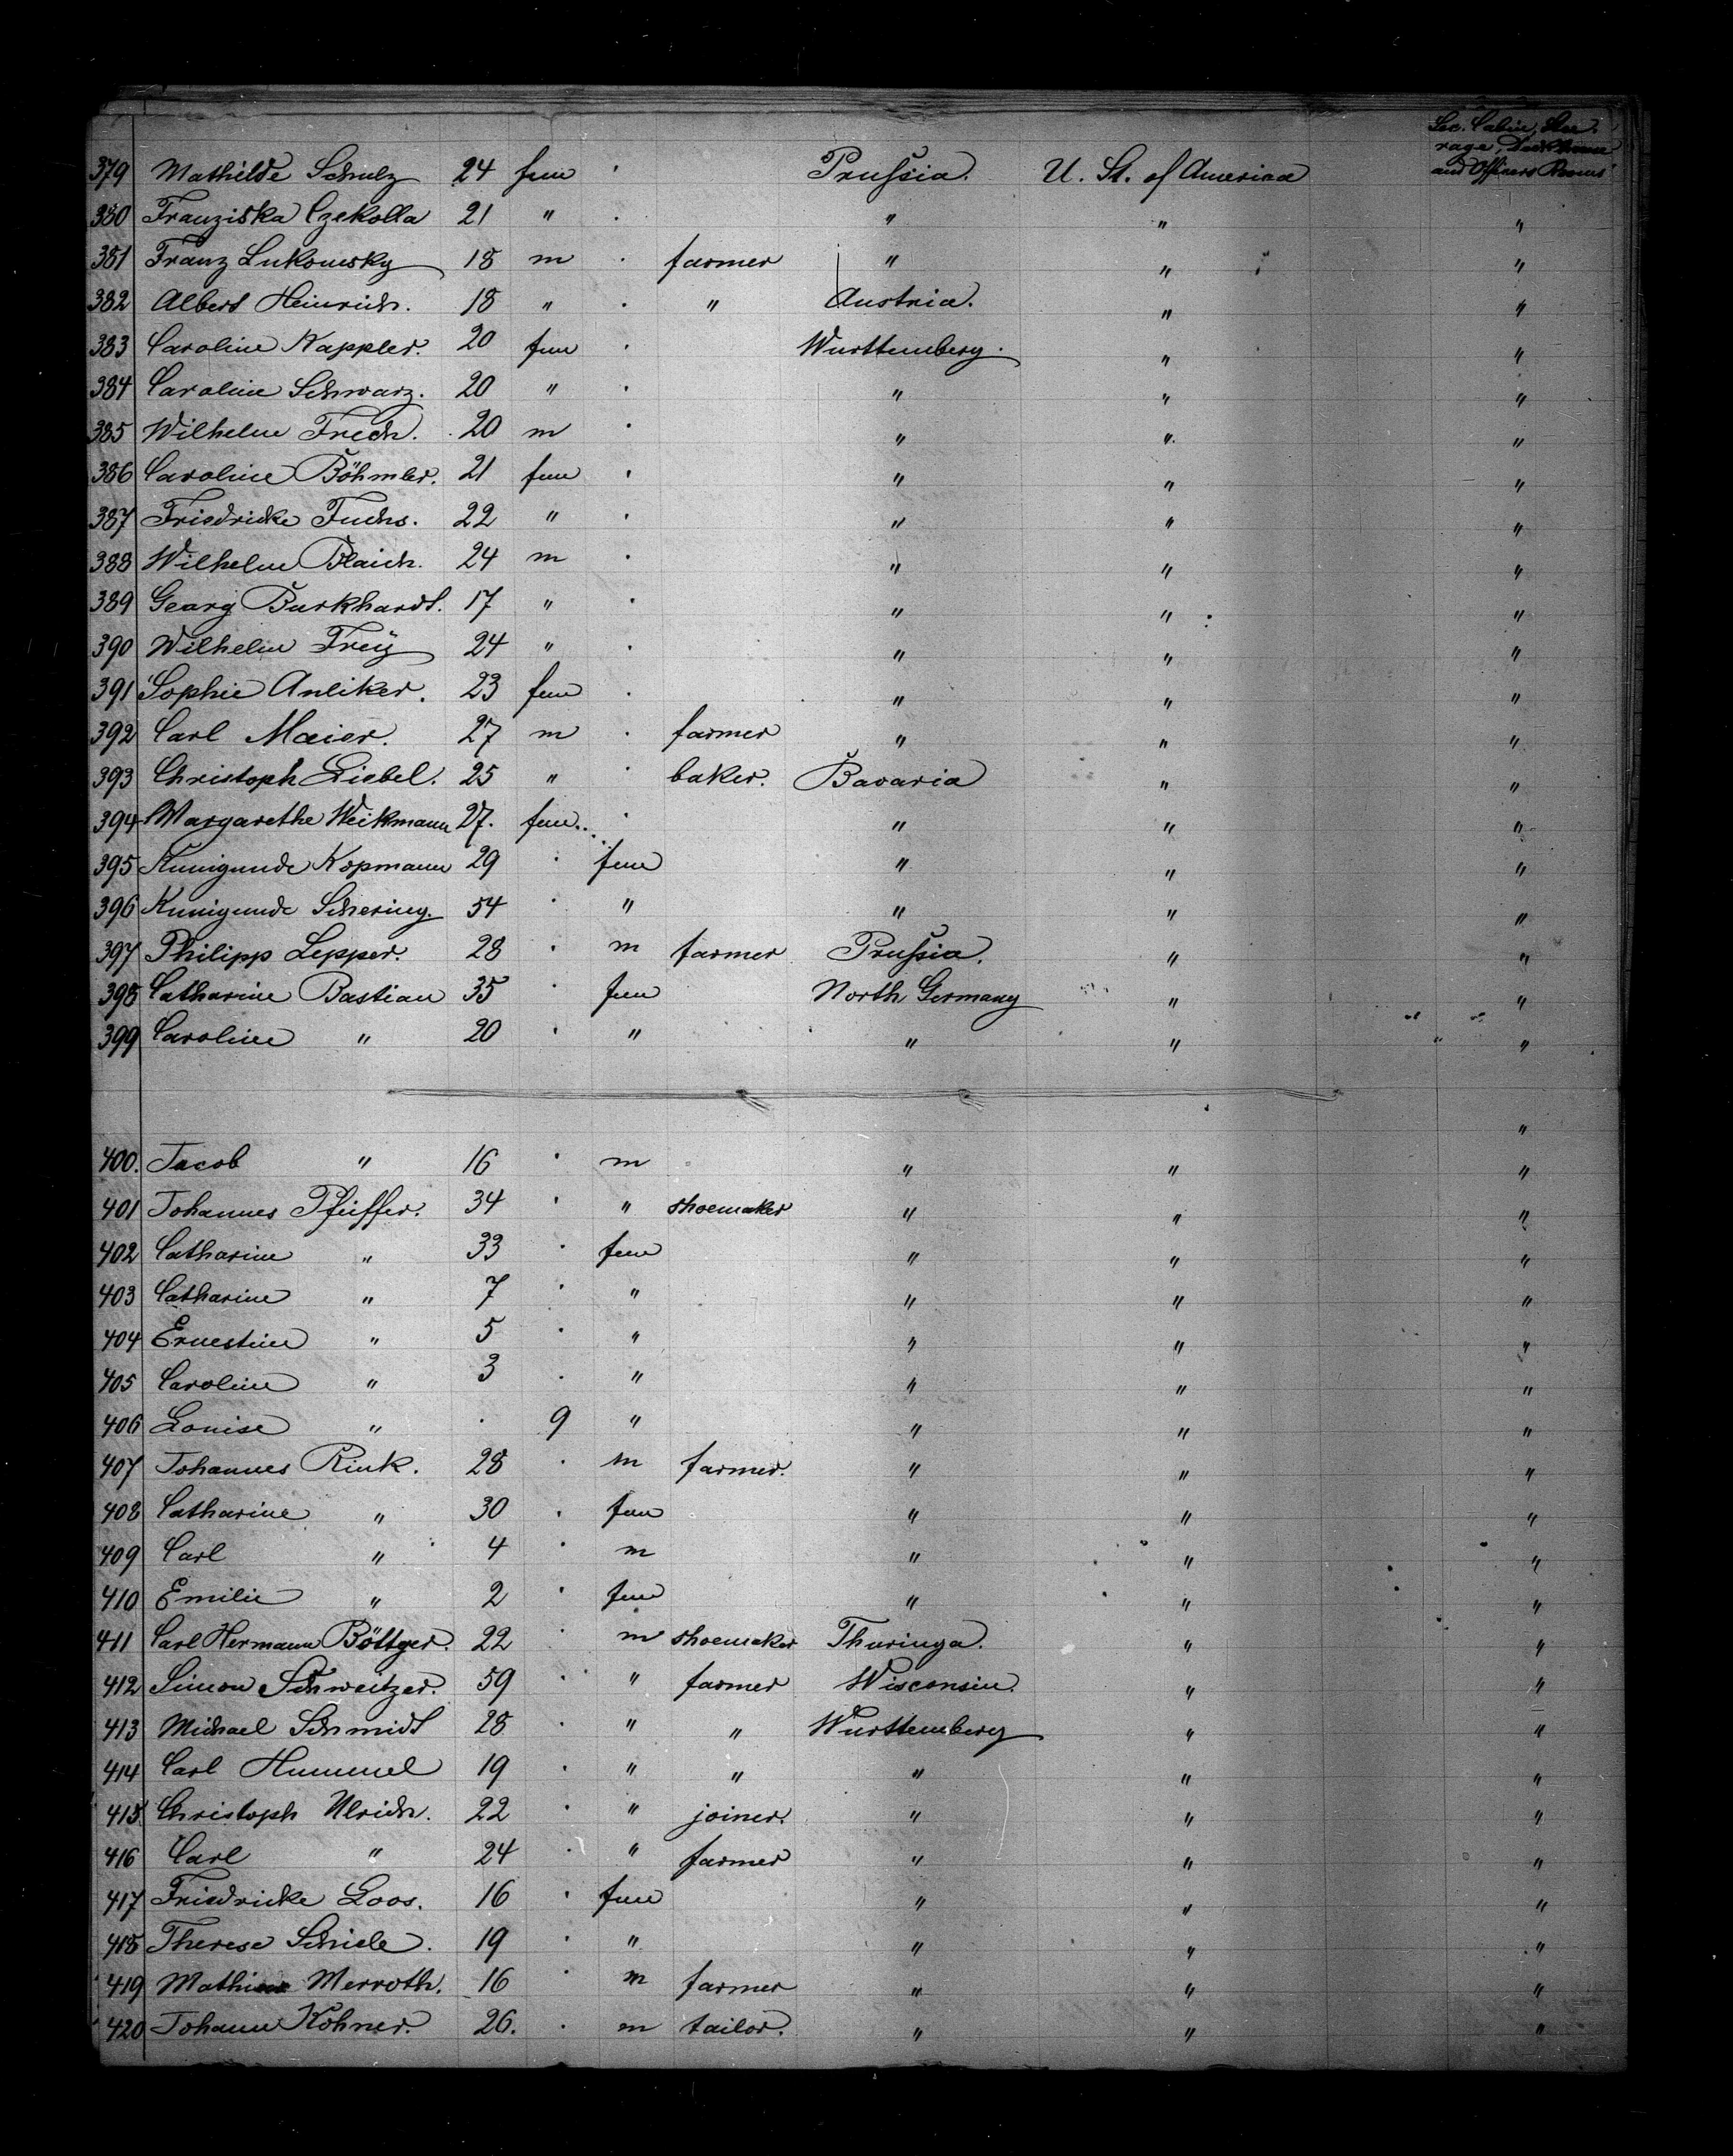 Sec. Cabin, Stee-
rage, Deckhouse
and Officers Rooms
379 Mathilde Schulz 24 fem · Prussia. U. St. of America
380 Franziska Czekolla 21 " · " " "
381 Franz Lukowsky 18 m · farmer " " "
382 Albert Heinrich. 18 " · " Austria. " "
383 Caroline Kappler. 20 fem · Wurttemberg. " "
384 Caroline Schwarz. 20 " · " " "
385 Wilhelm Frech. 20 m · " " "
386 Caroline Böhmler. 21 fem · " " "
387 Friedricke Fuchs. 22 " · " " "
388 Wilhelm Blaich. 24 m · " " "
389 Georg Burkhardt. 17 " · " " "
390 Wilhelm Frey 24 " · " " "
391 Sophie Anliker. 23 fem · " " "
392 Carl Maier. 27 m · farmer " " "
393 Christoph Liebel. 25 " · baker. Bavaria " "
394 Margarethe Weikmann 27. fem. · " " "
395 Kunigunde Kopmann 29 · fem " " "
396 Kunigunde Schering. 54 · " " " "
397 Philipp Lepper. 28 · m farmer Prussia. " "
398 Catharine Bastian 35 · fem North Germany " "
399 Caroline " 20 · " " " "
"
400. Jacob " 16 · m " " "
401 Johannes Pfeiffer. 34 · " shoemaker " " "
402 Catharine " 33 · fem " " "
403 Catharine " 7 · " " " "
404 Ernestine " 5 · " " " "
405 Caroline " 3 · " " " "
406 Louise " · 9 " " " "
407 Johannes Rink. 28 · m farmer. " " "
408 Catharine " 30 · fem " " "
409 Carl " 4 · m " " "
410 Emilie " 2 · fem " " "
411 Carl Hermann Böttger. 22 · m shoemaker Thuringa. " "
412 Simon Schweitzer. 59 · " farmer Wisconsin. " "
413 Michael Schmidt 28 · " " Wurttemberg " "
414 Carl Hummel 19 · " " " " "
415 Christoph Ulrich. 22 · " joiner. " " "
416 Carl " 24 · " farmer " " "
417 Friedricke Loos. 16 · fem " " "
418 Therese Schiele. 19 · " " " "
419 Mathias Merroth. 16 · m farmer " " "
420 Johann Kohner. 26. · m tailor. " " "